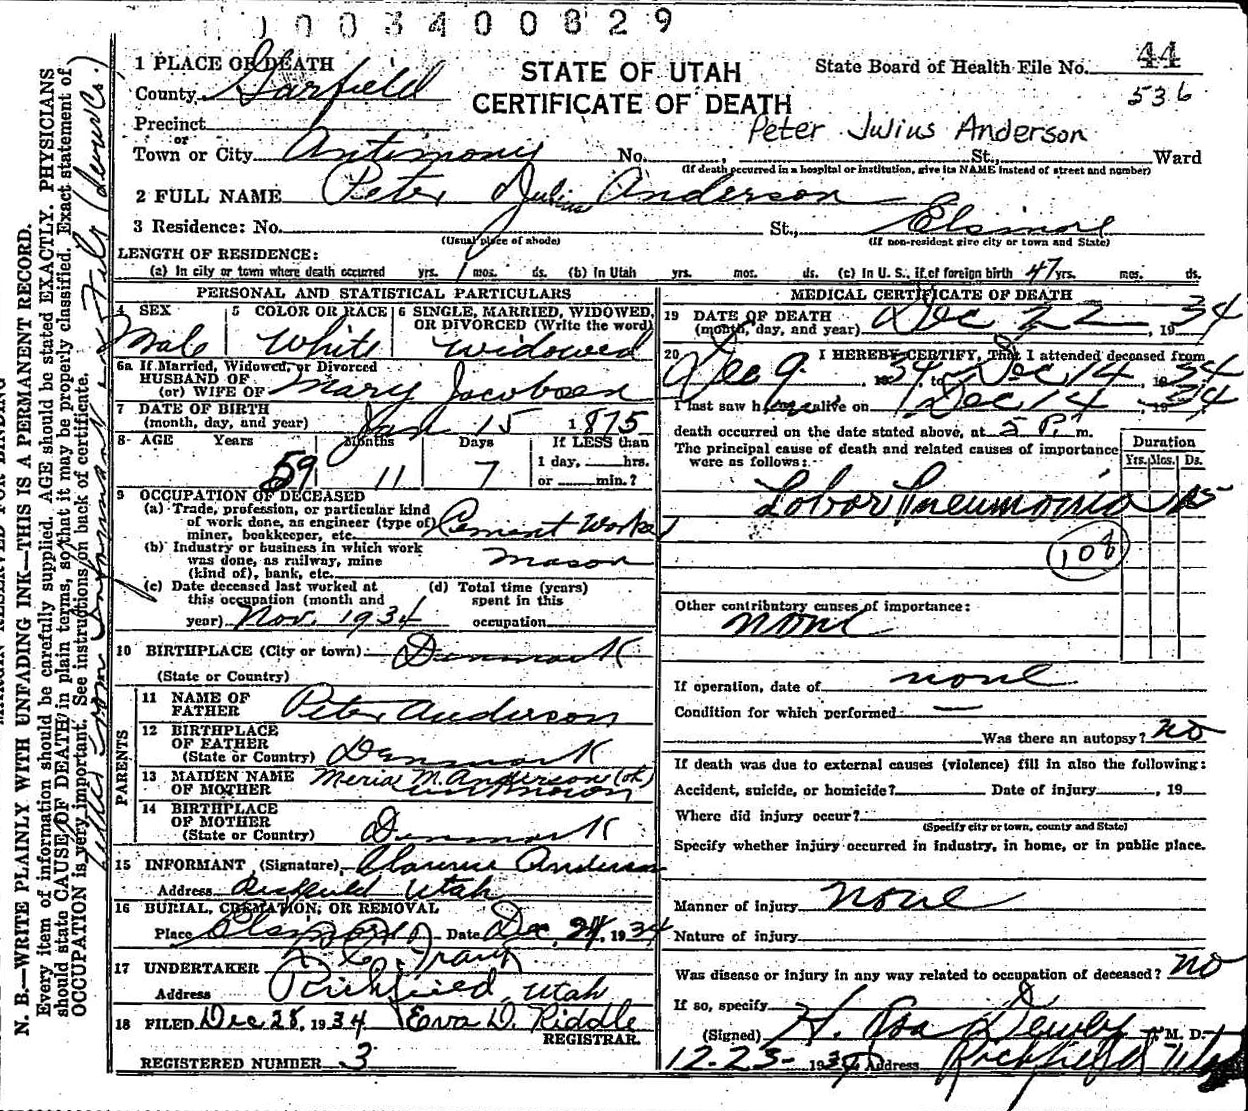 0003400829
1 PLACE OF DEATH
STATE OF UTAH
CERTIFICATE OF DEATH
State Board of Health File No. 44
536
County Garfield
Precinct
or
Peter Julius Anderson
Town or City Antimony No. , St., Ward
(If death occurred in a hospital or institution, give its NAME instead of street and number)
2 FULL NAME Peter Julius Anderson
3 Residence: No. St., Elsinore
(Usual place of abode) (If non-resident give city or town and State)
LENGTH OF RESIDENCE:
(a) In city or town where death occurred yrs. 1 mos. ds. (b) In Utah yrs. mos. ds. (c) In U. S., if of foreign birth 47 yrs. mos. ds.
PERSONAL AND STATISTICAL PARTICULARS
4 SEX 5 COLOR OR RACE 6 SINGLE, MARRIED, WIDOWED,
OR DIVORCED (Write the word)
Male White Widowed
6a If Married, Widowed, or Divorced
HUSBAND OF
(or) WIFE OF Mary Jacobsen
7 DATE OF BIRTH
(month, day, and year) Jan 15 1875
8- AGE Years Months Days If LESS than
59 11 7 1 day, hrs.
or min.?
9 OCCUPATION OF DECEASED
(a) Trade, profession, or particular kind
of work done, as engineer (type of)
miner, bookkeeper, etc. Cement Worker
(b) Industry or business in which work
was done, as railway, mine
(kind of), bank, etc. Mason
(c) Date deceased last worked at
this occupation (month and
year) Nov. 1934
(d) Total time (years)
spent in this
occupation
10 BIRTHPLACE (City or town) Denmark
(State or Country)
PARENTS
11 NAME OF
FATHER Peter Anderson
12 BIRTHPLACE
OF FATHER
(State or Country) Denmark
13 MAIDEN NAME
OF MOTHER Meria M. Anderson (ok)
unknown
14 BIRTHPLACE
OF MOTHER
(State or Country) Denmark
15 INFORMANT (Signature) Clarence Anderson
Address Richfield Utah
16 BURIAL, CREMATION, OR REMOVAL
Place Elsinore Date Dec 24, 1934
17 UNDERTAKER
Address Richfield, Utah
18 FILED Dec 28, 1934 Eva D. Riddle
REGISTRAR.
REGISTERED NUMBER 3
MEDICAL CERTIFICATE OF DEATH
19 DATE OF DEATH
(month, day, and year) Dec 22, 1934
20 I HEREBY CERTIFY, That I attended deceased from
Dec 9, 1934 to Dec 14, 1934
I last saw him alive on Dec 14, 1934
death occurred on the date stated above, at 5 P. m.
The principal cause of death and related causes of importance
were as follows:
Duration
Yrs. Mos. Ds.
Lobar Pneumonia 15
108
Other contributary causes of importance:
none
If operation, date of none
Condition for which performed —
Was there an autopsy? no
If death was due to external causes (violence) fill in also the following:
Accident, suicide, or homicide? Date of injury , 19
Where did injury occur?
(Specify city or town, county and State)
Specify whether injury occurred in industry, in home, or in public place.
Manner of injury none
Nature of injury
Was disease or injury in any way related to occupation of deceased? no
If so, specify
(Signed) H. Asa Dewey, M. D.
12-23- 1934 Address Richfield Utah
MARGIN RESERVED FOR BINDING
N. B.—WRITE PLAINLY WITH UNFADING INK—THIS IS A PERMANENT RECORD.
Every item of information should be carefully supplied. AGE should be stated EXACTLY. PHYSICIANS
should state CAUSE OF DEATH in plain terms, so that it may be properly classified. Exact statement of
OCCUPATION is very important. See instructions on back of certificate.